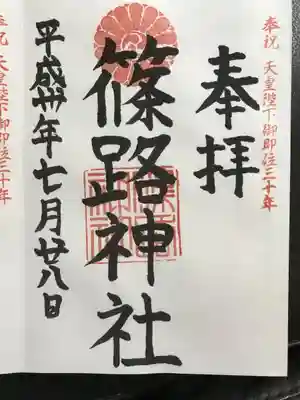 奉祝 天皇陛下御即位三十年
奉拝
篠路神社
平成卅年七月廿八日
奉祝 天皇陛下御即位三十年